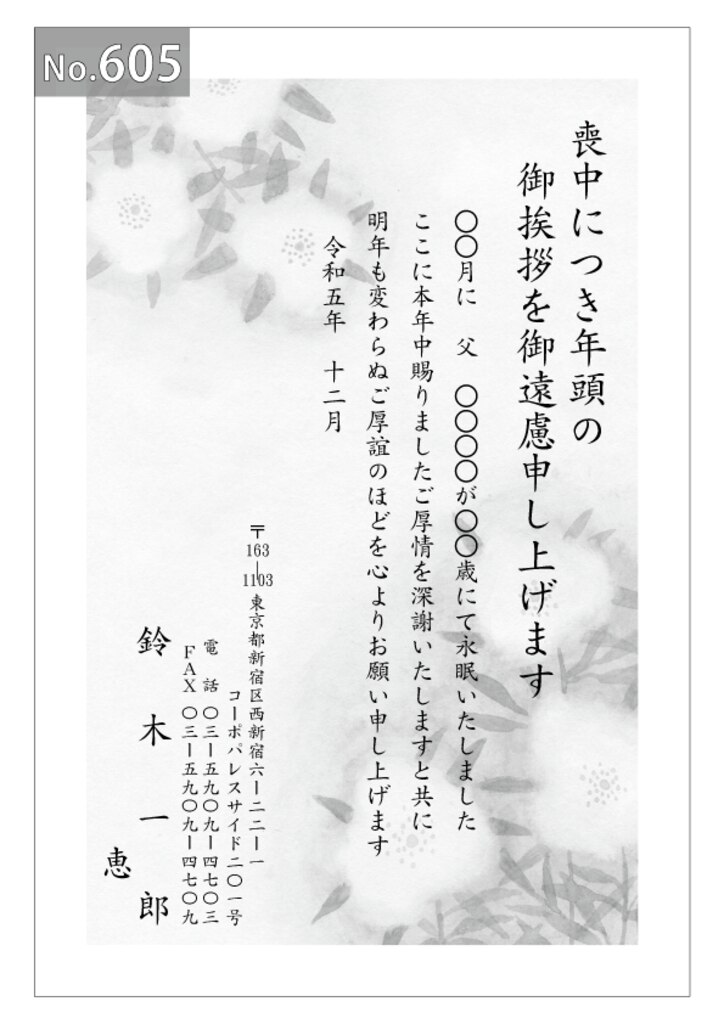 No.605
喪中につき年頭の
御挨拶を御遠慮申し上げます
〇〇月に 父 〇〇〇〇が〇〇歳にて永眠いたしました
ここに本年中賜りましたご厚情を深謝いたしますと共に
明年も変わらぬご厚誼のほどを心よりお願い申し上げます
令和五年 十二月
〒163-1103 東京都新宿区西新宿六ー二二ー一
コーポパレスサイド二〇一号
電話 〇三ー五九〇九ー四七〇三
FAX 〇三ー五九〇九ー四七〇九
鈴木一郎
恵